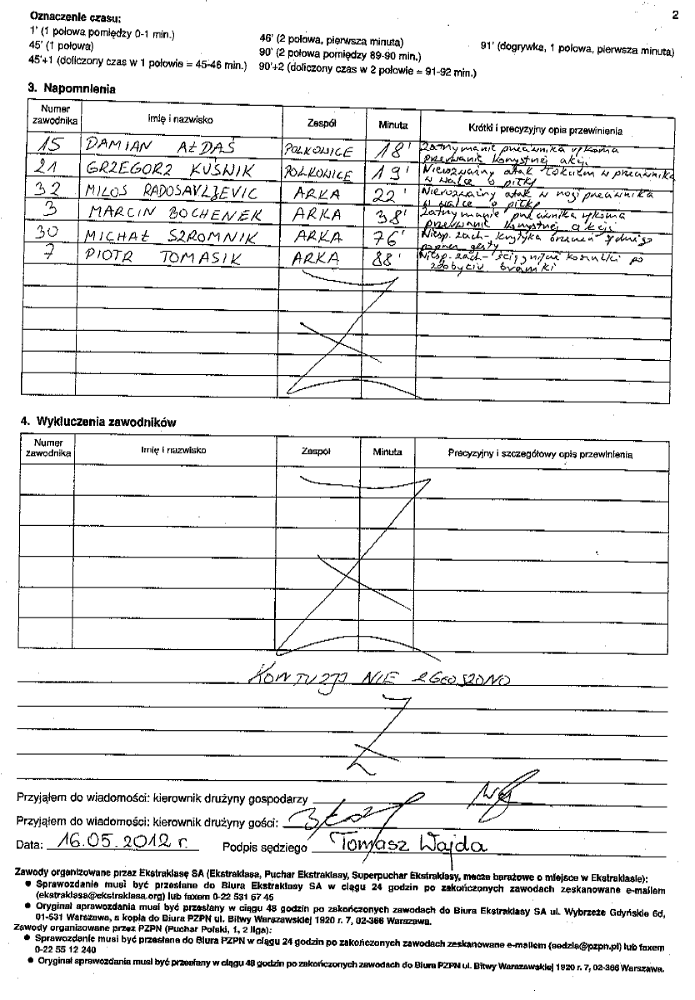 2
Oznaczenie czasu:
1' (1 połowa pomiędzy 0-1 min.)
45' (1 połowa)
45'+1 (doliczony czas w 1 połowie = 45-46 min.)
46' (2 połowa, pierwsza minuta)
90' (2 połowa pomiędzy 89-90 min.)
90'+2 (doliczony czas w 2 połowie = 91-92 min.)
91' (dogrywka, 1 połowa, pierwsza minuta)
3. Napomnienia
Numer zawodnika Imię i nazwisko Zespół Minuta Krótki i precyzyjny opis przewinienia
15 DAMIAN AŁDAŚ POLKOWICE 18' Zatrzymanie przeciwnika
przerwanie korzystnej akcji
21 GRZEGORZ KUŚNIK POLKOWICE 19' Nierozważny atak łokciem w przeciwnika
w walce o piłkę
32 MILOS RADOSAVLJEVIC ARKA 22' Nierozważny atak w nogi przeciwnika
w walce o piłkę
3 MARCIN BOCHENEK ARKA 38' Zatrzymanie przeciwnika
przerwanie korzystnej akcji
30 MICHAŁ SZROMNIK ARKA 76' Niesp. zach - krytyka orzeczeń sędziego
poprzez gesty
7 PIOTR TOMASIK ARKA 88' Niesp. zach - ściągnięcie koszulki po
zdobyciu bramki
4. Wykluczenia zawodników
Numer zawodnika Imię i nazwisko Zespół Minuta Precyzyjny i szczegółowy opis przewinienia
KONTUZJI NIE ZGŁOSZONO
Przyjąłem do wiadomości: kierownik drużyny gospodarzy
Przyjąłem do wiadomości: kierownik drużyny gości:
Data: 16.05.2012 r. Podpis sędziego Tomasz Wajda
Zawody organizowane przez Ekstraklasę SA (Ekstraklasa, Puchar Ekstraklasy, Superpuchar Ekstraklasy, mecze barażowe o miejsce w Ekstraklasie):
● Sprawozdanie musi być przesłane do Biura Ekstraklasy SA w ciągu 24 godzin po zakończonych zawodach zeskanowane e-mailem
(ekstraklasa@ekstraklasa.org) lub faxem 0-22 531 57 45
● Oryginał sprawozdania musi być przesłany w ciągu 48 godzin po zakończonych zawodach do Biura Ekstraklasy SA ul. Wybrzeże Gdyńskie 6d,
01-531 Warszawa, a kopia do Biura PZPN ul. Bitwy Warszawskiej 1920 r. 7, 02-366 Warszawa.
Zawody organizowane przez PZPN (Puchar Polski, 1, 2 liga):
● Sprawozdanie musi być przesłane do Biura PZPN w ciągu 24 godzin po zakończonych zawodach zeskanowane e-mailem (sedzia@pzpn.pl) lub faxem
0-22 55 12 240
● Oryginał sprawozdania musi być przesłany w ciągu 48 godzin po zakończonych zawodach do Biura PZPN ul. Bitwy Warszawskiej 1920 r. 7, 02-366 Warszawa.